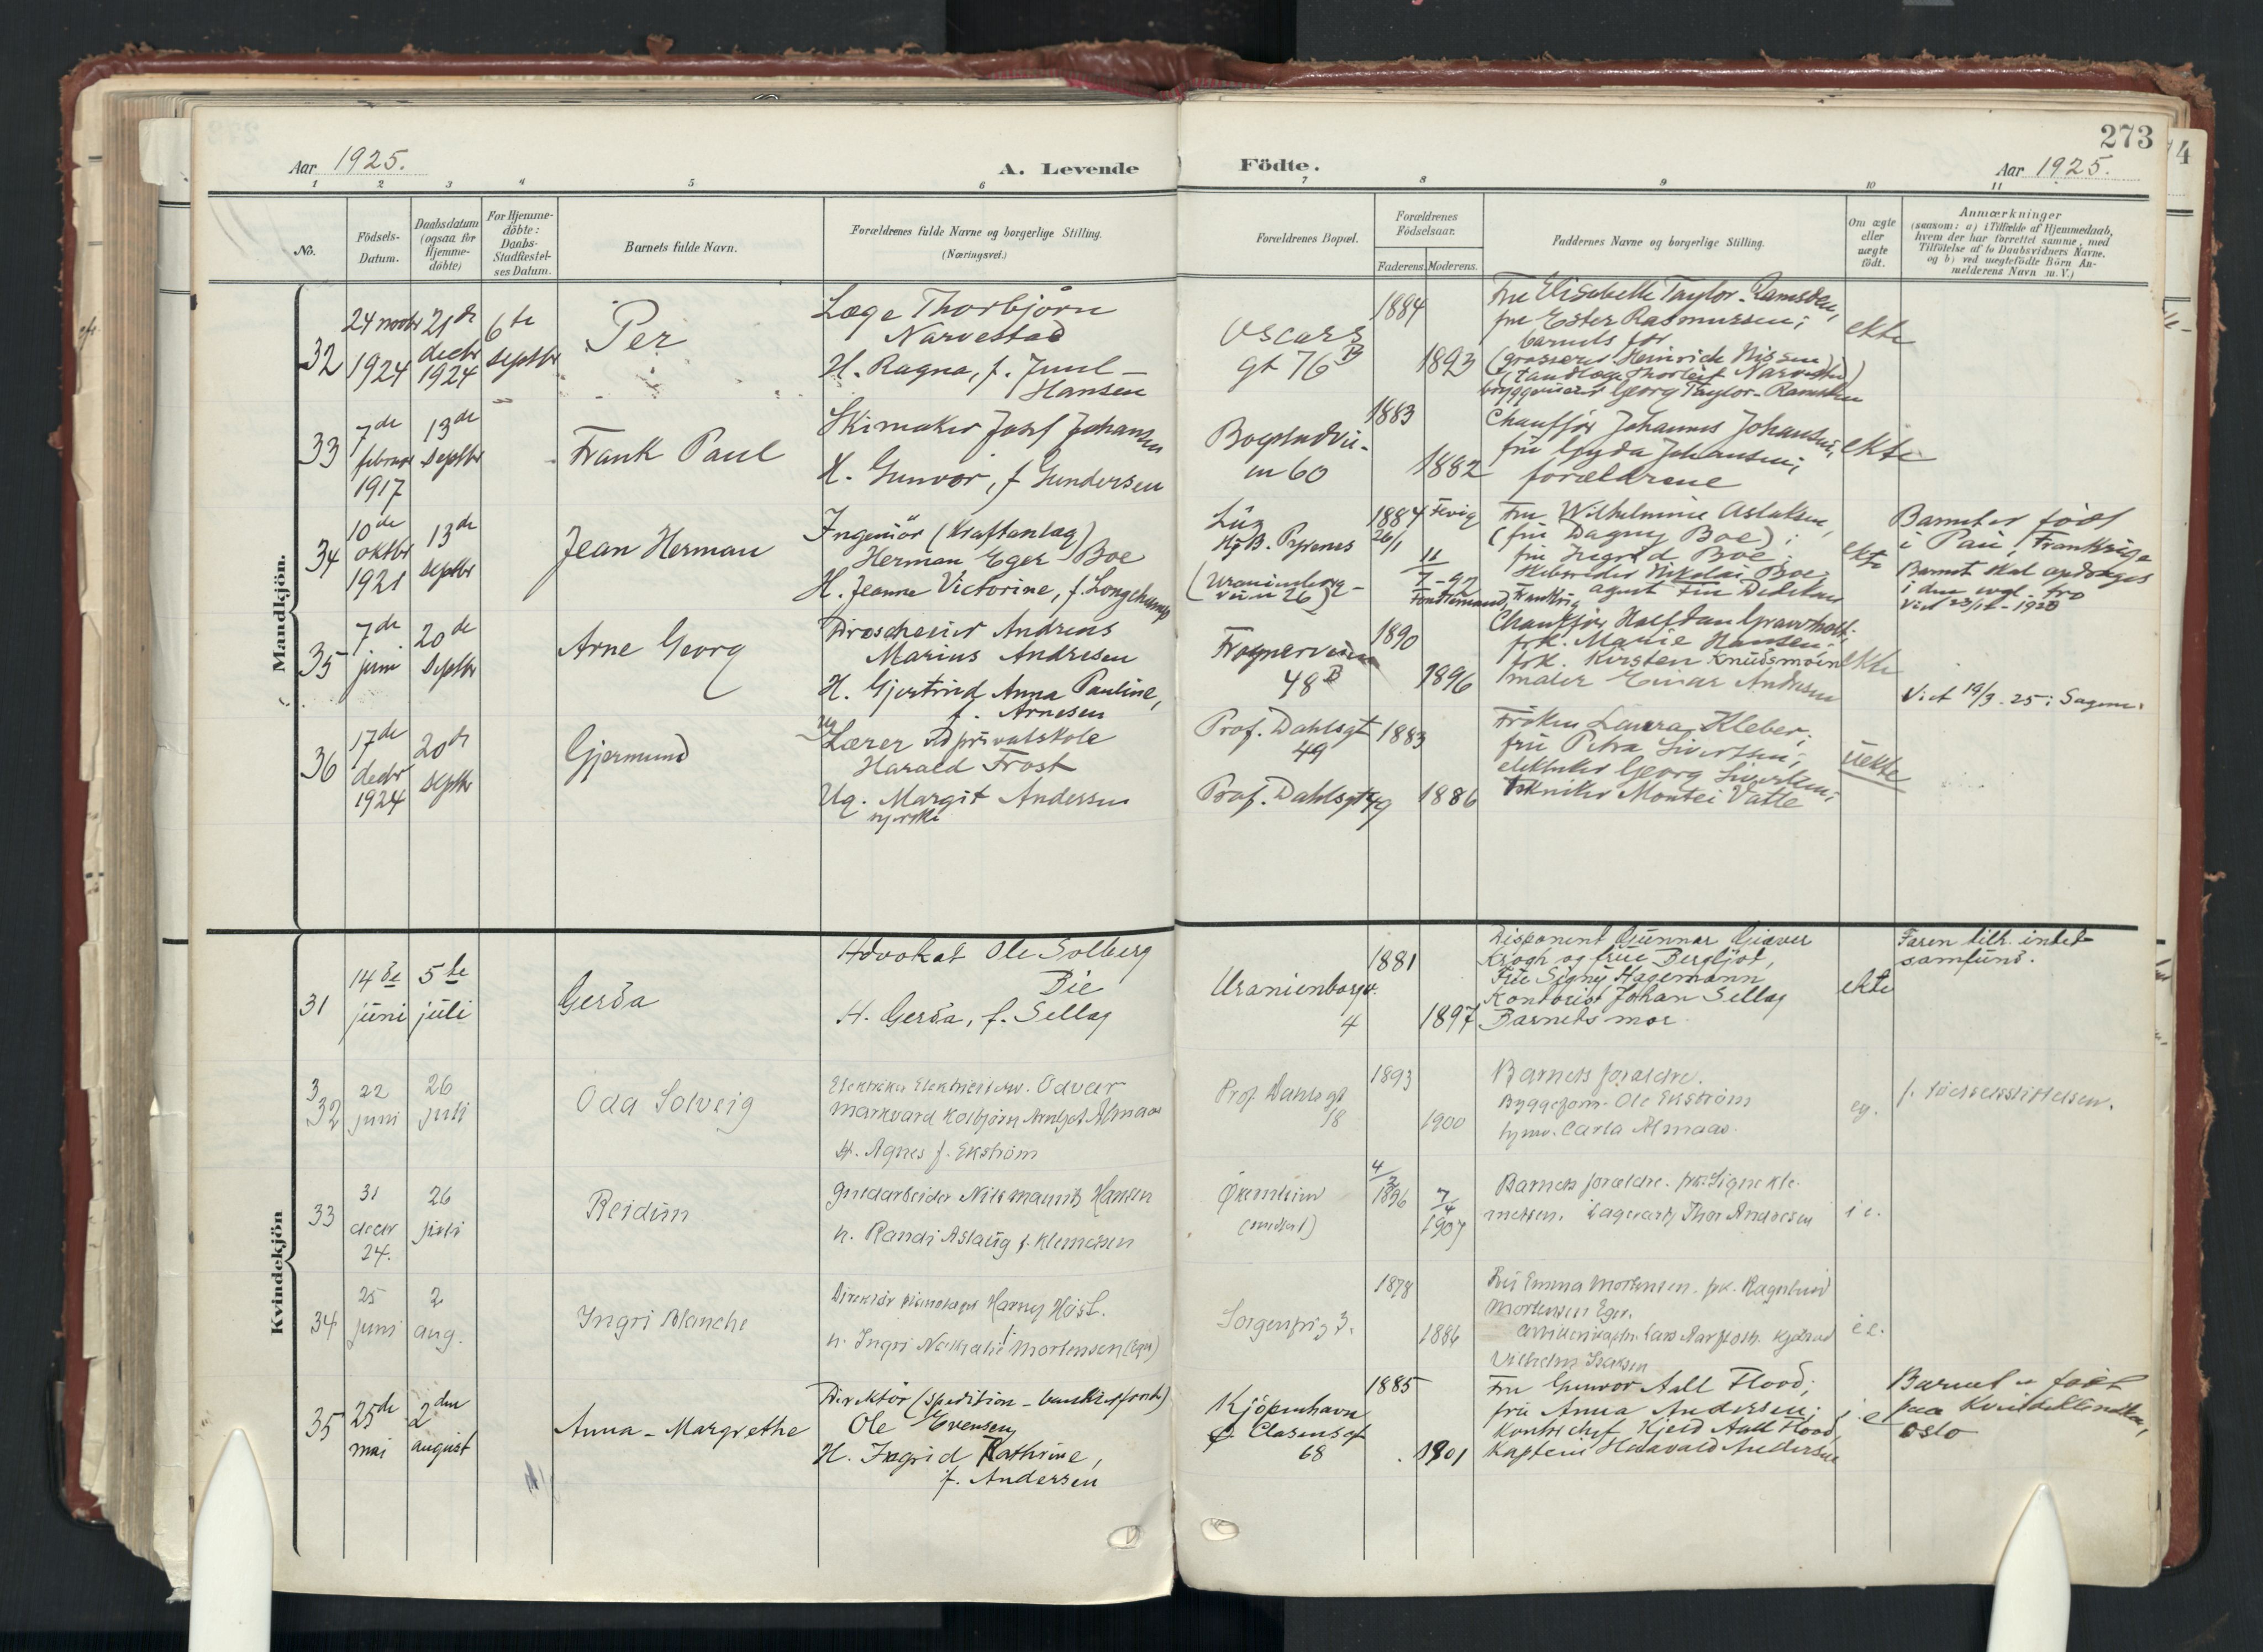 273
Aar 1925.
A. Levende
Födte.
Aar 1925.
1 2 3 4 5 6 7 8 9 10 11
No.
Födsels-
Datum.
Daabsdatum
(ogsaa for
Hjemme-
döbte)
For Hjemme-
döbte:
Daabs-
Stadfæstel-
ses Datum.
Barnets fulde Navn.
Forældrenes fulde Navne og borgerlige Stilling.
(Næringsvei.)
Forældrenes Bopæl.
Forældrenes
Födselsaar.
Faderens. Moderens.
Faddernes Navne og borgerlige Stilling.
Om ægte
eller
uægte
födt.
Anmærkninger
(saasom: a) i Tilfælde af Hjemmedaab,
hvem der har forrettet samme, med
Tilföielse af to Daabsvidners Navne.
og b) ved uægtefödte Börn An-
melderens Navn m. V.)
Mandkjön.
32
24 novbr
1924
21de
decbr
1924
6te
septbr
Per
Læge Thorbjörn
Narvestad
H. Ragna, f. Juul-
Hansen
Oscars
gt 76 B
1884
1893
Fru Elisabeth Taylor-Ramsden,
fru Ester Rasmussen;
barnets far
(grosserer Heinrich Nissen)
(tandlæge Thorleif Narvestad)
bryggerieier Georg Taylor-Ramsden
ekte
33
7de
februar
1917
13de
septbr
Frank Paul
Skimaker Josef Johansen
H. Gunvor, f Gundersen
Bogstadvei-
en 60
1883
1882
Chaufför Johannes Johansen,
fru Gyda Johansen;
forældrene
ekte
34
10de
oktbr
1921
13de
septbr
Jean Herman
Ingeniör (Kraftanlæg)
Herman Eger Boe
H. Jeanne Victorine, f. Longchamp
Luz
B. Pyrenes
(Uranienborg-
veien 26)
1884 Fevig
26/1
Fru Wilhelmine Aslaksen,
(fru Dagny Boe);
fru Ingrid Boe;
skibsreder Nikolai Boe;
agent
ekte
Barnet er född
i Pau, Frankrige
Barnet skal opdrages
i den evgl. tro
35
7de
juni
20de
septbr
Arne Georg
Droscheeier Andreas
Marius Andresen
H. Gjertrud Anna Pauline,
f. Arnesen
Frognerveien
48 B
1890
1896
Chauffør Halfdan Gravholt;
frk. Marie Hansen;
frk. Kirsten Knudsmoen
maler Einar Andresen
ekte
Viet 19/3. 25 i Sagene.
36
17de
decbr
1924
20de
septbr
Gjermund
Ug.
Lærer ved privatskole
Harald Frost
Ug. Margit Andersen
syerske
Prof. Dahlsgt
49
Prof. Dahlsgt 49
1883
1886
Fröken Laura Kleber;
fru Petra Siversen;
elektriker Georg Siversen;
tekniker Montei Vatle
uekte
Kvindekjön
31
14de
juni
5te
juli
Gerda
Advokat Ole Solberg
Bie
H. Gerda, f. Sellag
Uranienborgv.
4
1881
1897
Disponent Gunnar Giæver
Krogh og frue Bergljot,
Frue Signy Hagemann
Kontorist Johan Sellag
Barnets mor
ekte
Faren tilh. intet
samfund.
3
32
22
juni
26
juli
Oda Solveig
Markvard Kolbjörn Arnljot Almaas
H. Agnes f. Ekström
Prof Dahls gt
18
1893
1900
Barnets forældre.
Byggeform. Ole Ekström
Carla Almaas.
eg.
f. födselsstiftelsen.
33
31
decbr
24.
26
juli
Reidun
Nils Mauritz Hansen
h. Randi Aslaug f. Klemetsen
4/3
1896
7/4
1907
Barnets forældre. frk. Signe Kle-
metsen. Lagerarb. Thor Andresen
34
25
juni
2
aug.
Ingri Blanche
Direktör Harry Höst.
h. Ingri Nathalie f. Mortensen (Eger)
Sorgenfrig 3.
1878
1886
Fru Emma Mortensen. frk. Ragnhild
Mortensen Eger.
Vilhelm Isaksen
35
25de
mai
2den
august
Anna-Margrethe
Direktör (spedition-bankierforr.)
Ole Evensen
H. Ingrid Kathrine,
f. Andersen
Kjöpenhavn
Clasensgt
68
1885
1901
Fru Gunvor Aall Flood;
fru Anna Andersen;
kontorchef Kjeld Aall Flood,
Kaptein Haavald Andersen
Barnet er födt
paa Kvindeklinikken,
Oslo